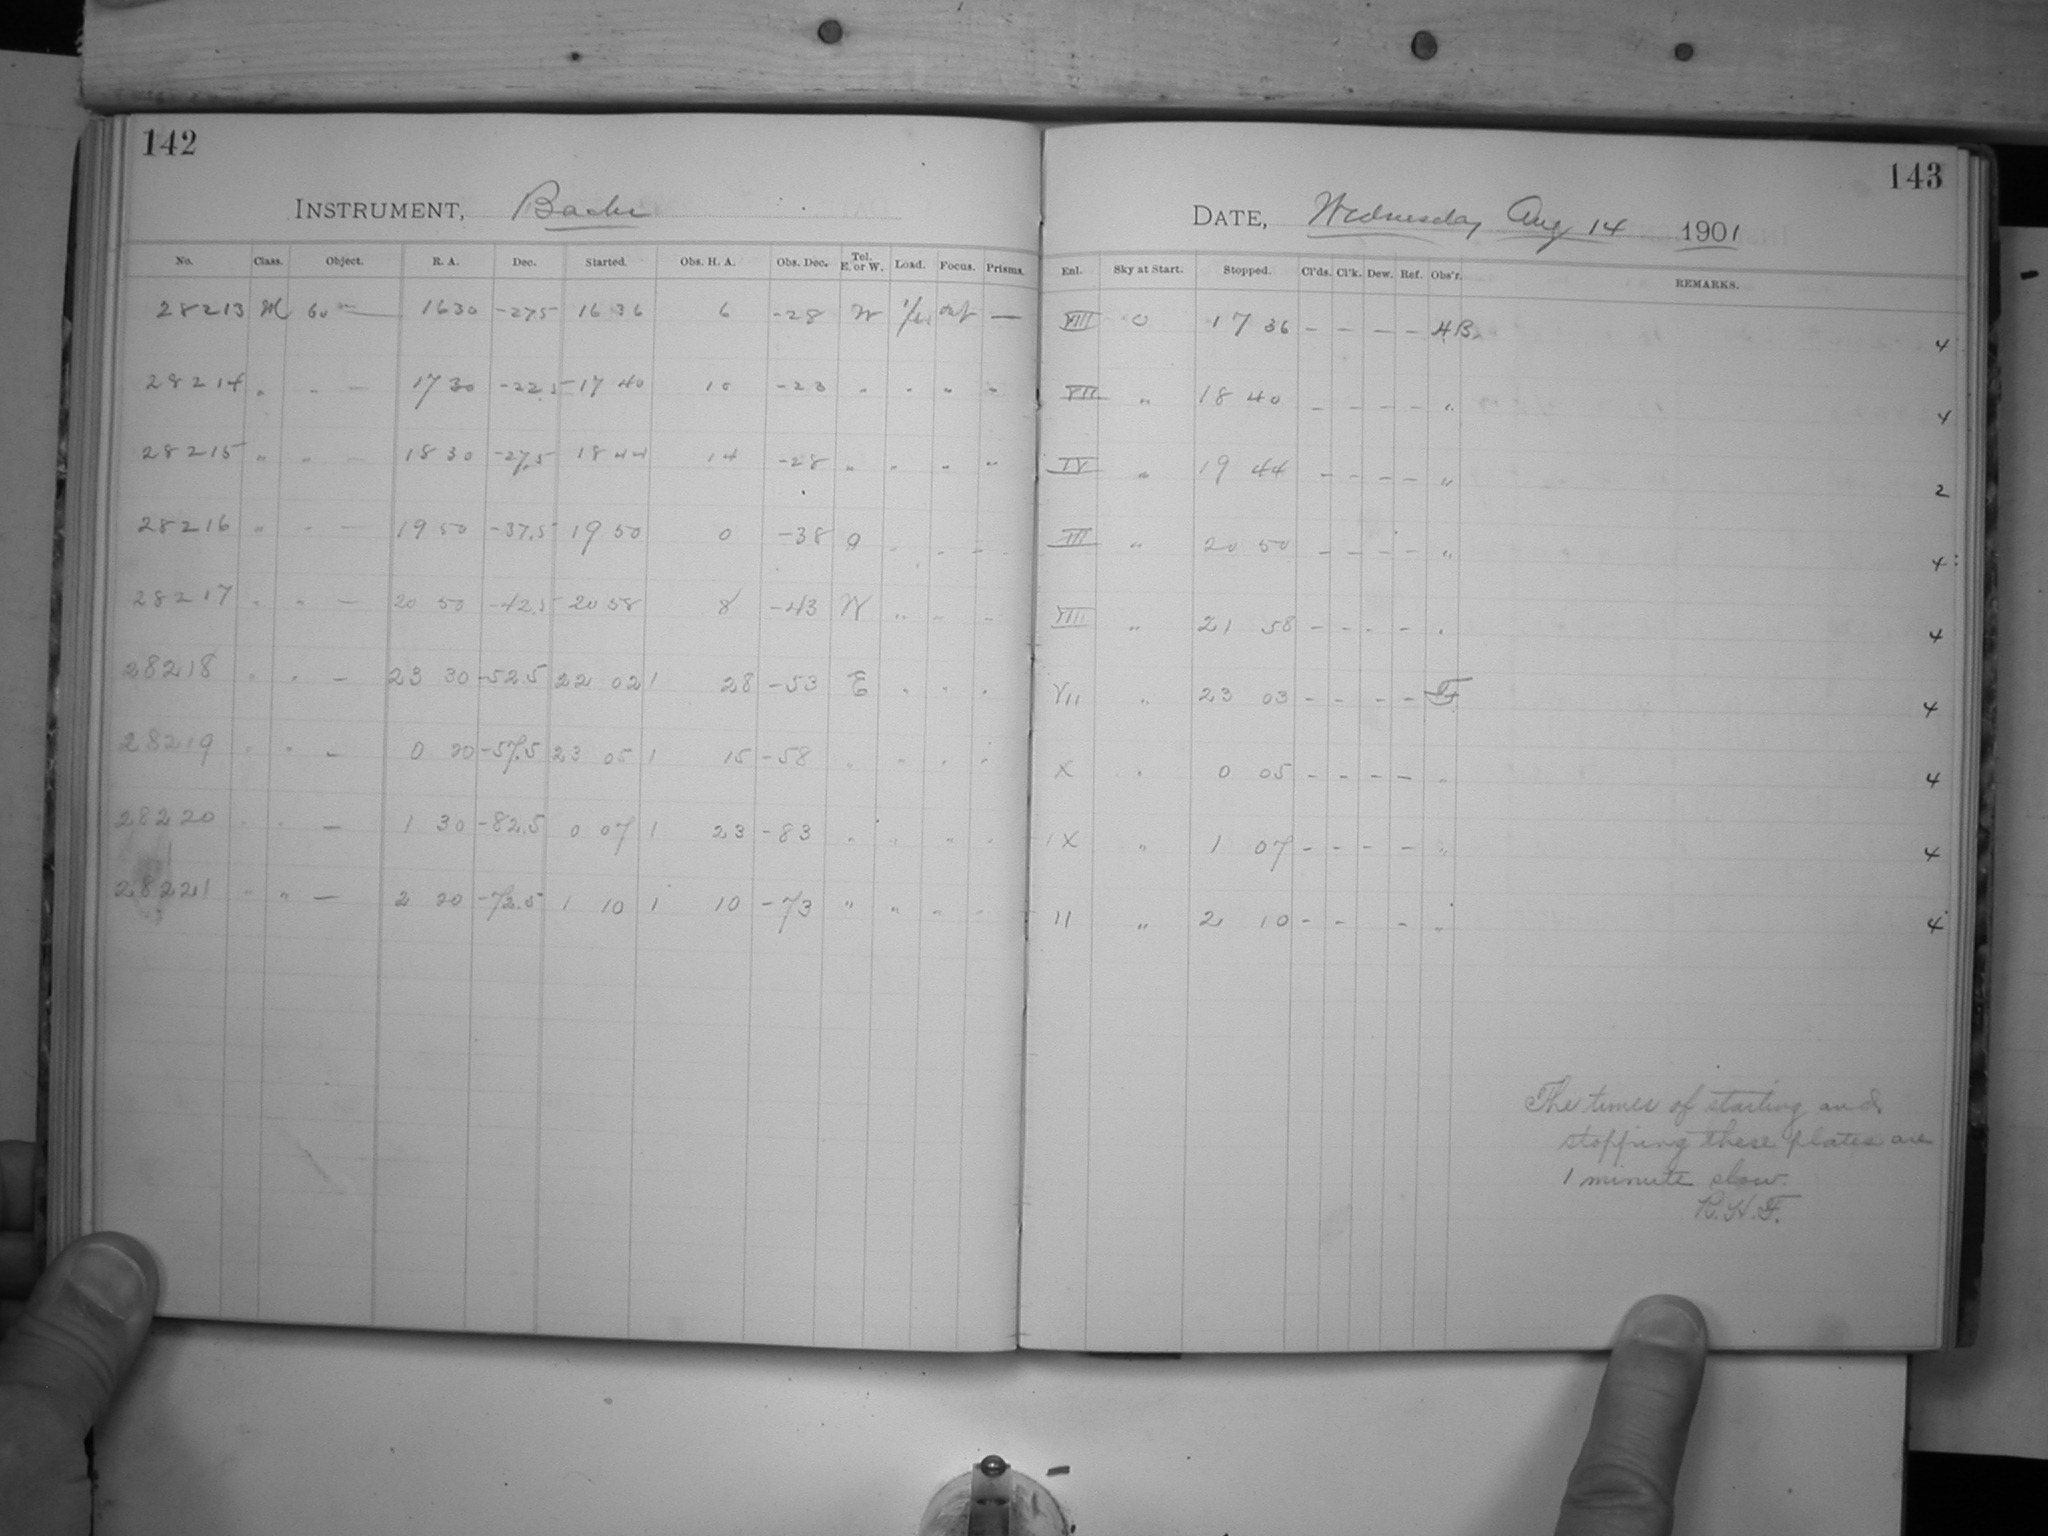 142
INSTRUMENT, Bache
No. Class. Object. R. A. Dec. Started. Obs. H. A. Obs. Dec. Tel. E. or W. Load. Focus. Prisms.
28213 M 60m — 16 30 -27.5 16 36 6 -28 W — 
28214 " " — 17 30 -22.5 17 40 10 -23 " " " "
28215 " " — 18 30 -27.5 18 44 14 -28 " " " "
28216 " " — 19 50 -37.5 19 50 0 -38 " " "
28217 " " — 20 50 -42.5 20 58 8 -43 W " " "
28218 " " — 23 30 -52.5 22 02 1 28 -53 E " " "
28219 " " — 0 20 -57.5 23 05 1 15 -58 " " " "
28220 " " — 1 30 -82.5 0 07 1 23 -83 " " " "
28221 " " — 2 20 -72.5 1 10 1 10 -73 " " " "
143
DATE, Wednesday Aug 14 1901
Enl. Sky at Start. Stopped. Cl'ds. Cl'k. Dew. Ref. Obs'r. REMARKS.
VIII 0 17 36 – – – – HB. 4
VII " 18 40 – – – – " 4
IV " 19 44 – – – – " 2
III " 20 50 – – – – " 4
VIII " 21 58 – – – – " 4
VII " 23 03 – – – – F 4
X " 0 05 – – – – " 4
IX " 1 07 – – – – " 4
II " 2 10 – – – " 4
The times of starting and
stopping these plates are
1 minute slow.
R.H.F.